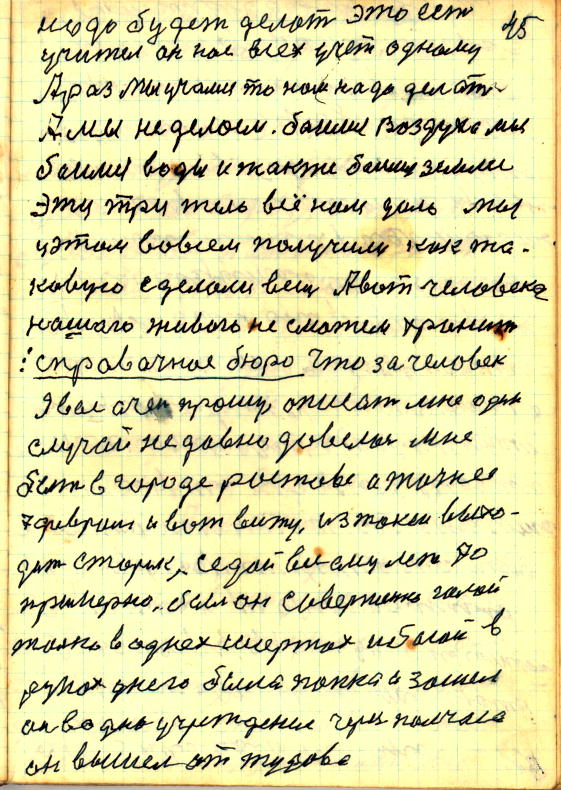 45
надо будет делат это ест
учител он нас всех учет одному
А раз мы учами то нам надо делат
А мы не делаем. были воздуха мы
были воды и также были земли
Эти три тела всё нам дали мы
цэтом вовсем получили как та-
ковую сделали вещ А вот человека
нашаго живого не сможем хранит
справочное бюро Что за человек
Я вас очен прошу описат мне один
случай не давно довелос мне
быт в городе ростове а точнее
7 феврали и вот вижу, из такси выхо-
дит старик, седой ему лет 70
примерно, был он совершенно галой
толко в однех шортах и босой в
руках унего была папка и зашел
он водно учреждение через полчаса
он вышел от тудова